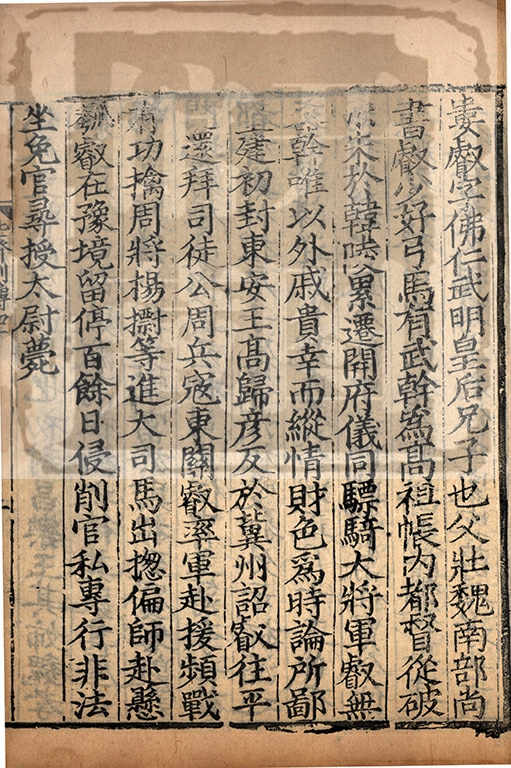 婁叡字佛仁武明皇后兄子也父壯魏南部尚
書叡少好弓馬有武幹為髙祖帳內都督從破
朱於韓陵累遷開府儀同驃騎大將軍叡無
幹唯以外戚貴幸而縱情財色為時論所鄙
皇建初封東安王髙歸彦反於冀州詔叡往平
還拜司徒公周兵寇東關叡率軍赴援頻戰
有功擒周將楊㯹等進大司馬出揔偏師赴懸
瓠叡在豫境留停百餘日侵削官私專行非法
坐免官尋授太尉薨